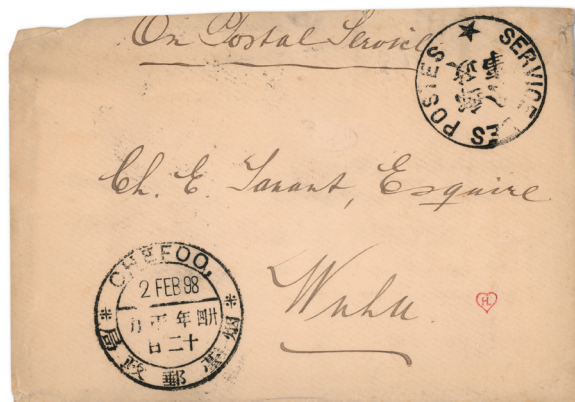 On Postal Service
SERVICE DES POSTES
郵政
Ch. E. Tanant, Esquire
Wuhu.
H.
CHEEFOO,
2 FEB 98
廿四年正月
十二日
郵政局